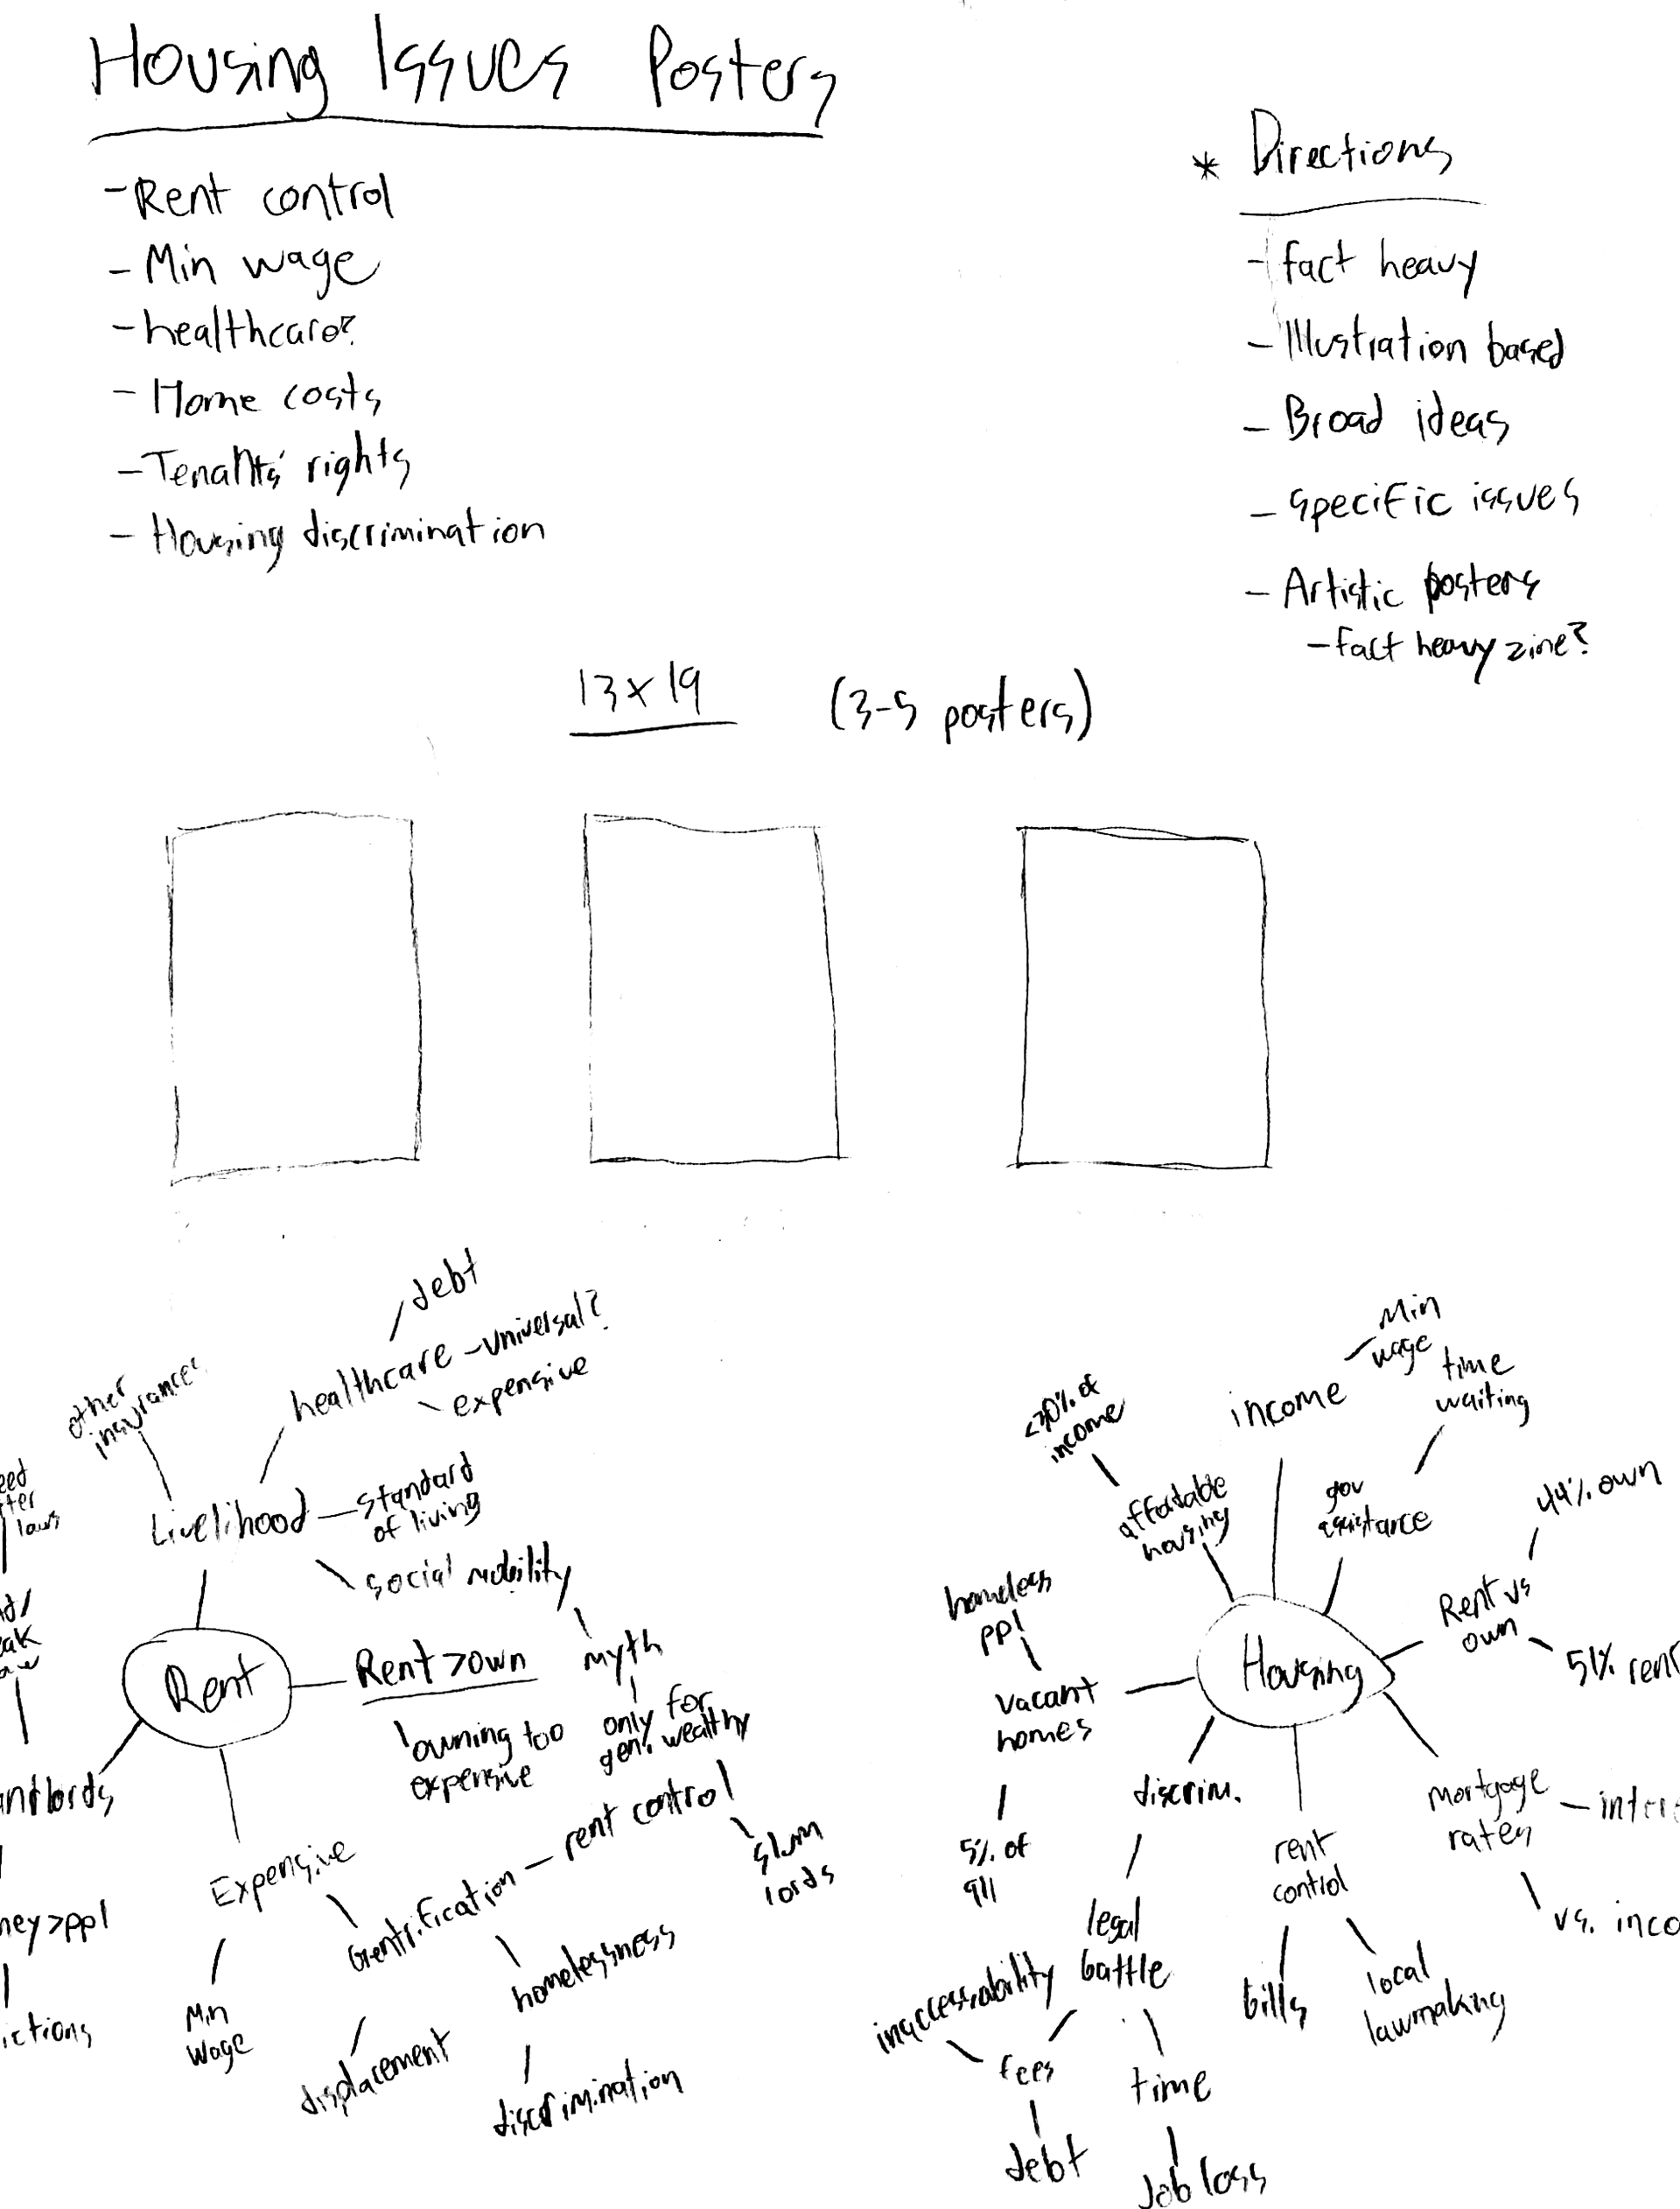 Housing Issues Posters
- Rent control
- Min wage
- healthcare?
- Home costs
- Tenants' rights
- Housing discrimination
* Directions
- fact heavy
- Illustration based
- Broad ideas
- specific issues
- Artistic posters
- fact heavy zine?
13 x 19 (3-5 posters)
debt
healthcare - universal?
expensive
other
insurances
Livelihood
standard
of living
social mobility
myth
only for
gen. wealthy
Rent
Rent > own
owning too
expensive
Expensive
Min
wage
Gentrification - rent control
slum
lords
homelessness
displacement
discrimination
laws
Min
wage
income
time
waiting
gov
assistance
<30% of
income
affordable
housing
44% own
Rent vs
own
51% rent
homeless
ppl
vacant
homes
5% of
all
Housing
discrim.
legal
battle
inaccessability
fees
debt
time
Job loss
rent
control
bills
local
lawmaking
mortgage
rates
vs.